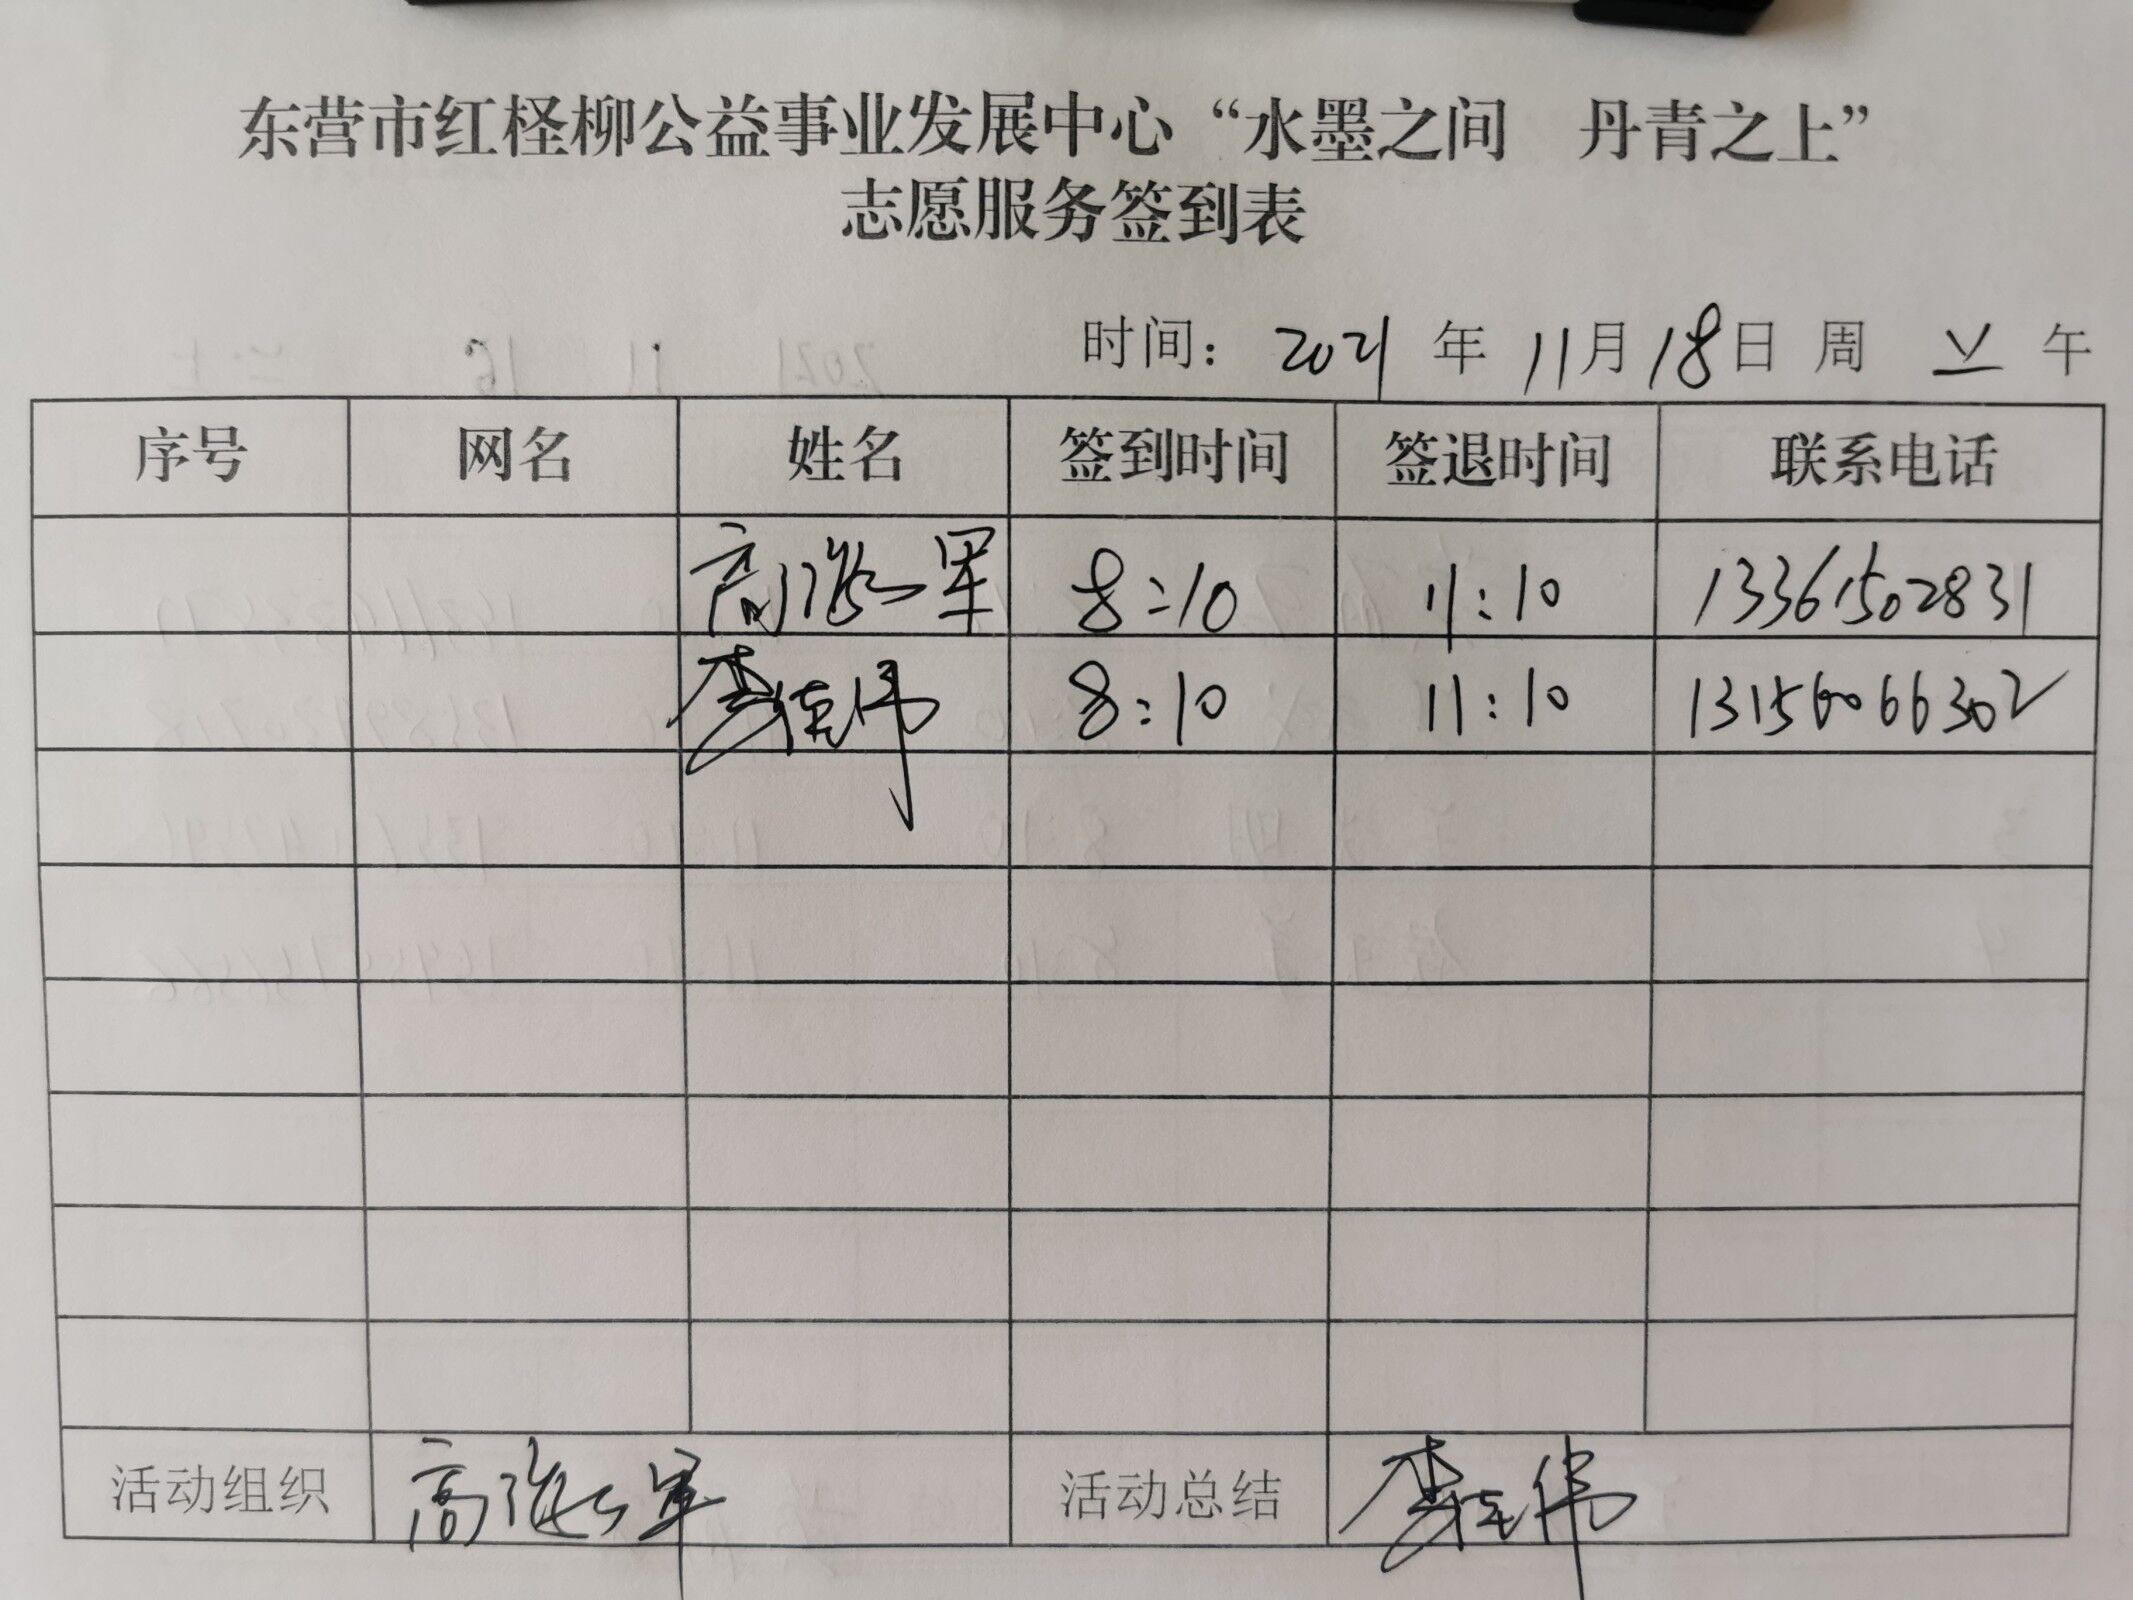 东营市红柽柳公益事业发展中心“水墨之间 丹青之上”
志愿服务签到表
时间： 2021 年 11月18日 周 午
序号 网名 姓名 签到时间 签退时间 联系电话
高 军 8:10 11:10 13361502831
李佳伟 8:10 11:10 13156066302
活动组织 高 军 活动总结 李佳伟